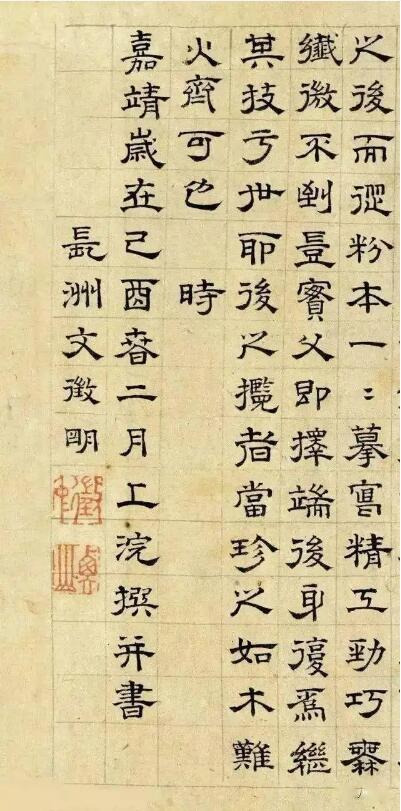 之後而從粉本一〻摹寫精工勁巧靡
纖微不到豈賓父即擇端後身復爲繼
其技亏世耶後之攬者當珍之如木難
火齊可也　時
嘉靖歲在己酉春二月上浣撰并書
長洲文徵明
衡山